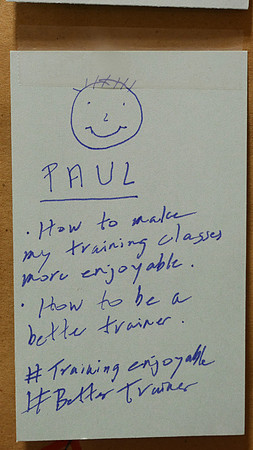 PAUL
· How to make
my training classes
more enjoyable.
· How to be a
better trainer.
# Training enjoyable
# Better Trainer